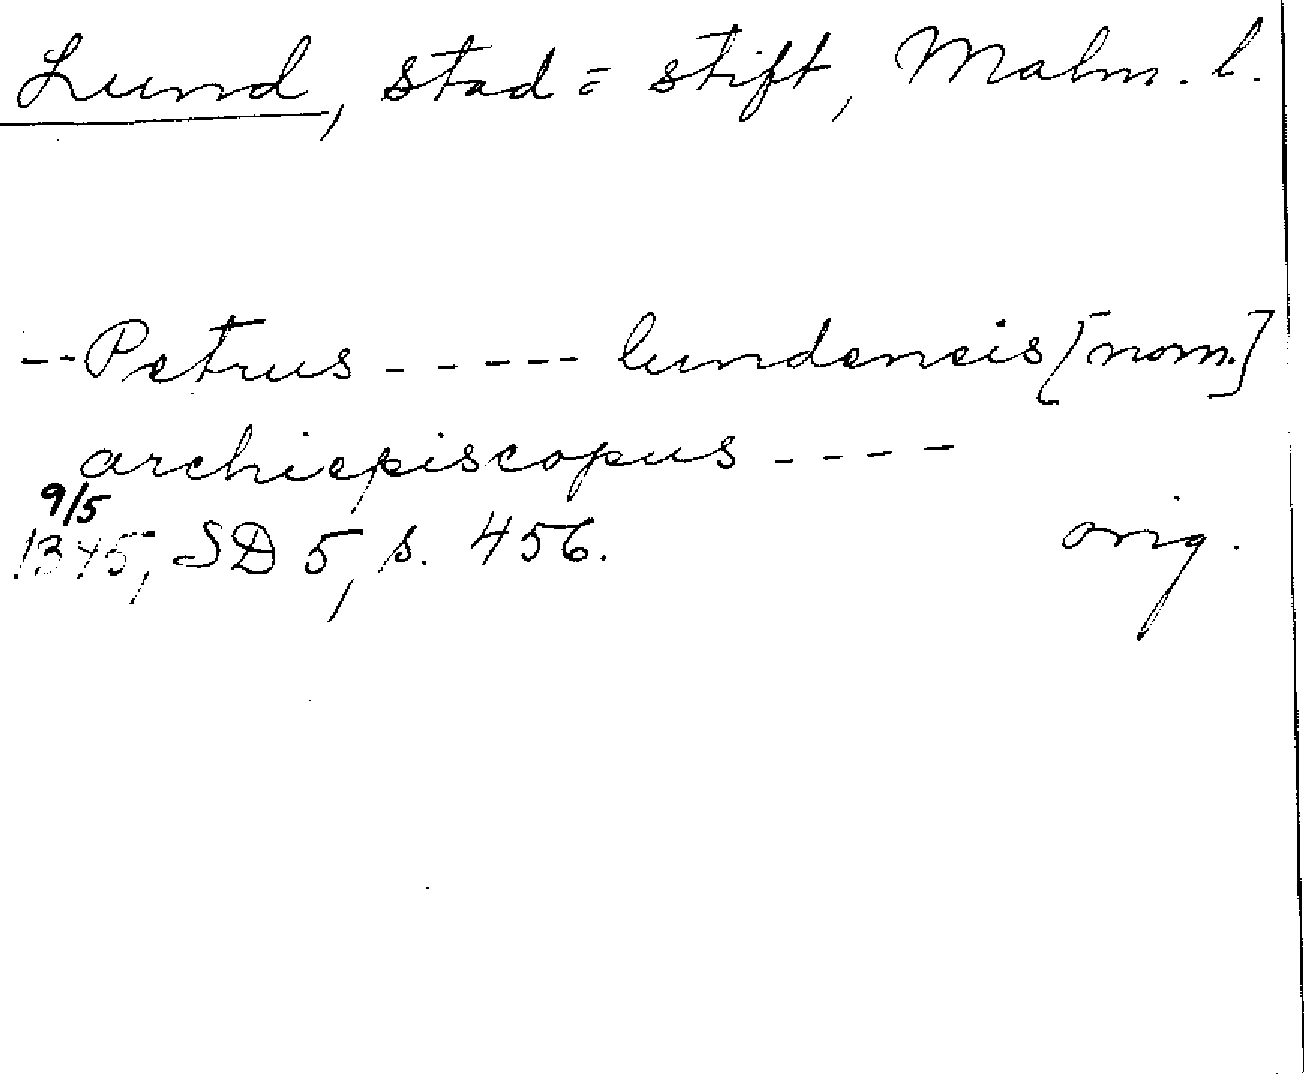 Lund, stad = stift, Malm. l.
-- Petrus - - - - - lundensis [nom.]
archiepiscopus - - - -
9/5
1345, SD 5, s. 456. orig.